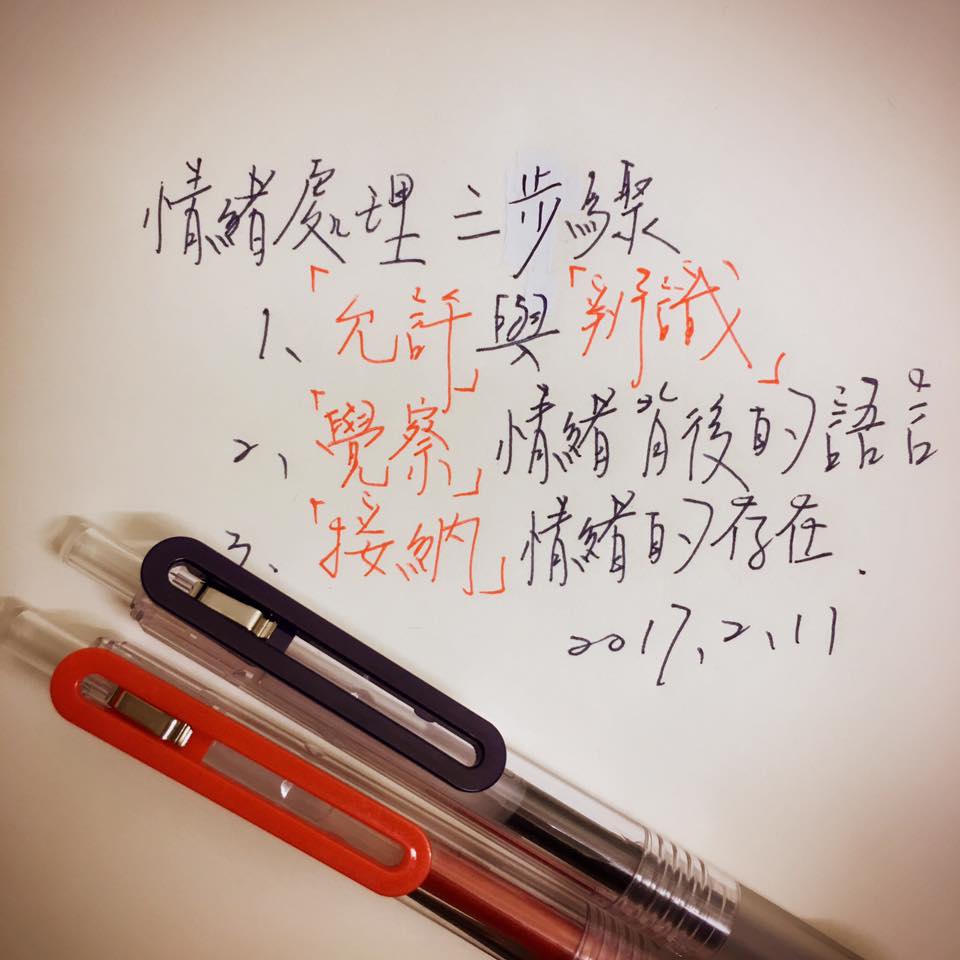 情緒處理三步驟
1、「允許」與「辨識」
2、「覺察」情緒背後的語言
3、「接納」情緒的存在.
2017.2.11